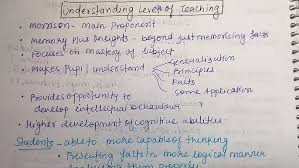 Understanding Level of Teaching
• Morrison - main Proponent
• Memory Plus Insights - beyond just memorising facts
• Focuses on mastery of subject
• Makes Pupil understand Generalisation
Principles
Facts
some Application
• Provides opportunity to
develop intellectual behaviour
• Higher development of cognitive abilities.
Students - able to more capable of thinking
• Presenting facts in more logical manner